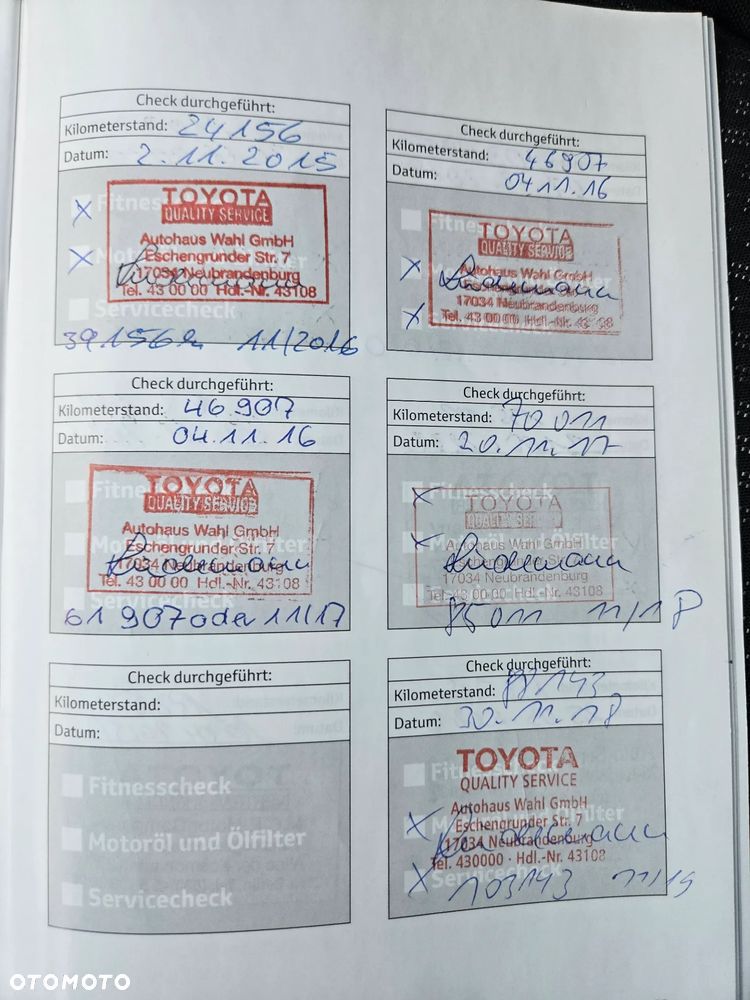 Check durchgeführt:
Kilometerstand: 24156
Datum: 2.11.2015
Fitness
TOYOTA
QUALITY SERVICE
Autohaus Wahl GmbH
Eschengrunder Str. 7
17034 Neubrandenburg
Tel. 43 00 00 Hdl.-Nr. 43108
Servicecheck
39156 11/2016
Check durchgeführt:
Kilometerstand: 46907
Datum: 04.11.16
TOYOTA
QUALITY SERVICE
Autohaus Wahl GmbH
17034 Neubrandenburg
Tel. 43 00 00 Hdl.-Nr. 43108
Check durchgeführt:
Kilometerstand: 46.907
Datum: 04.11.16
TOYOTA
QUALITY SERVICE
Autohaus Wahl GmbH
Eschengrunder Str. 7
17034 Neubrandenburg
Tel. 43 00 00 Hdl.-Nr. 43108
Servicecheck
61 907 oder 11/17
Check durchgeführt:
Kilometerstand: 70 011
Datum: 20.11.17
Fitnesscheck
TOYOTA
QUALITY SERVICE
Autohaus Wahl GmbH
Eschengrunder Str. 7
17034 Neubrandenburg
Tel. 43 00 00 Hdl.-Nr. 43108
85011 11/18
Check durchgeführt:
Kilometerstand:
Datum:
Fitnesscheck
Motoröl und Ölfilter
Servicecheck
Check durchgeführt:
Kilometerstand: 88143
Datum: 30.11.18
TOYOTA
QUALITY SERVICE
Autohaus Wahl GmbH
Eschengrunder Str. 7
17034 Neubrandenburg
Tel. 430000 · Hdl.-Nr. 43108
103143 11/19
OTOMOTO